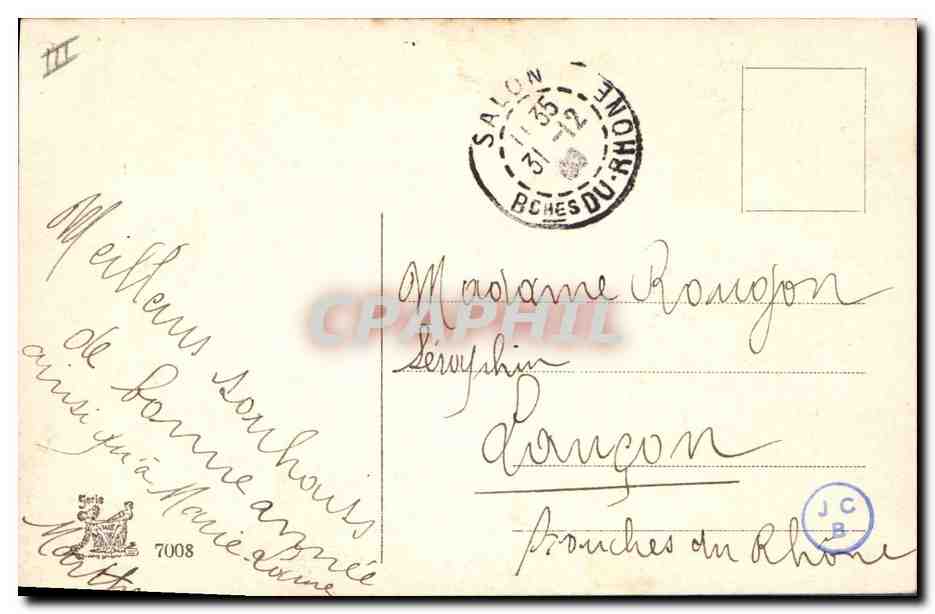 III
SALON
11 35
31-12
BCHES DU-RHONE
Meilleurs souhaits
de bonne année
ainsi qu'à Marie Louise
Marthe
Madame Rougon
Séraphin
Lançon
Bouches du Rhône
CPAPHIL
Serie
7008
J C
B